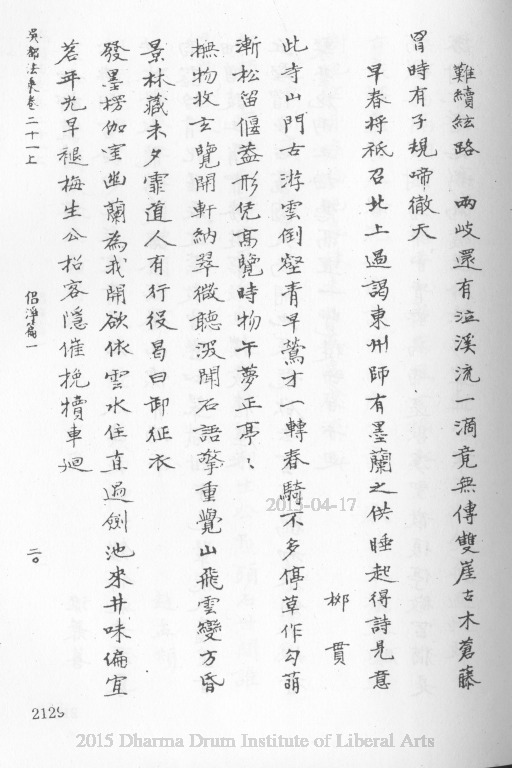 難續絃路　兩歧還有泣溪流一滴竟無傳雙崖古木蒼藤
冒時有子規啼徹天
早春將祗召北上過謁東州師有墨蘭之供睡起得詩見意
柳貫
此寺山門古游雲倒壑青早鶯才一轉春騎不多停草作勾萌
漸松留偃蓋形凭高覽時物午夢正亭〻
撫物收玄覽開軒納翠微聽泓聞石語擎重覺山飛雲變方昏
景林藏未夕霏道人有行役曷日卸征衣
發墨楞伽室幽蘭為我開欲依雲水住直過劍池來井味偏宜
茗年光早褪梅生公招客隱催挽犢車迴
吳都法乘卷二十一上
侶淨篇一
二〇
2129
2013-04-17
2015 Dharma Drum Institute of Liberal Arts